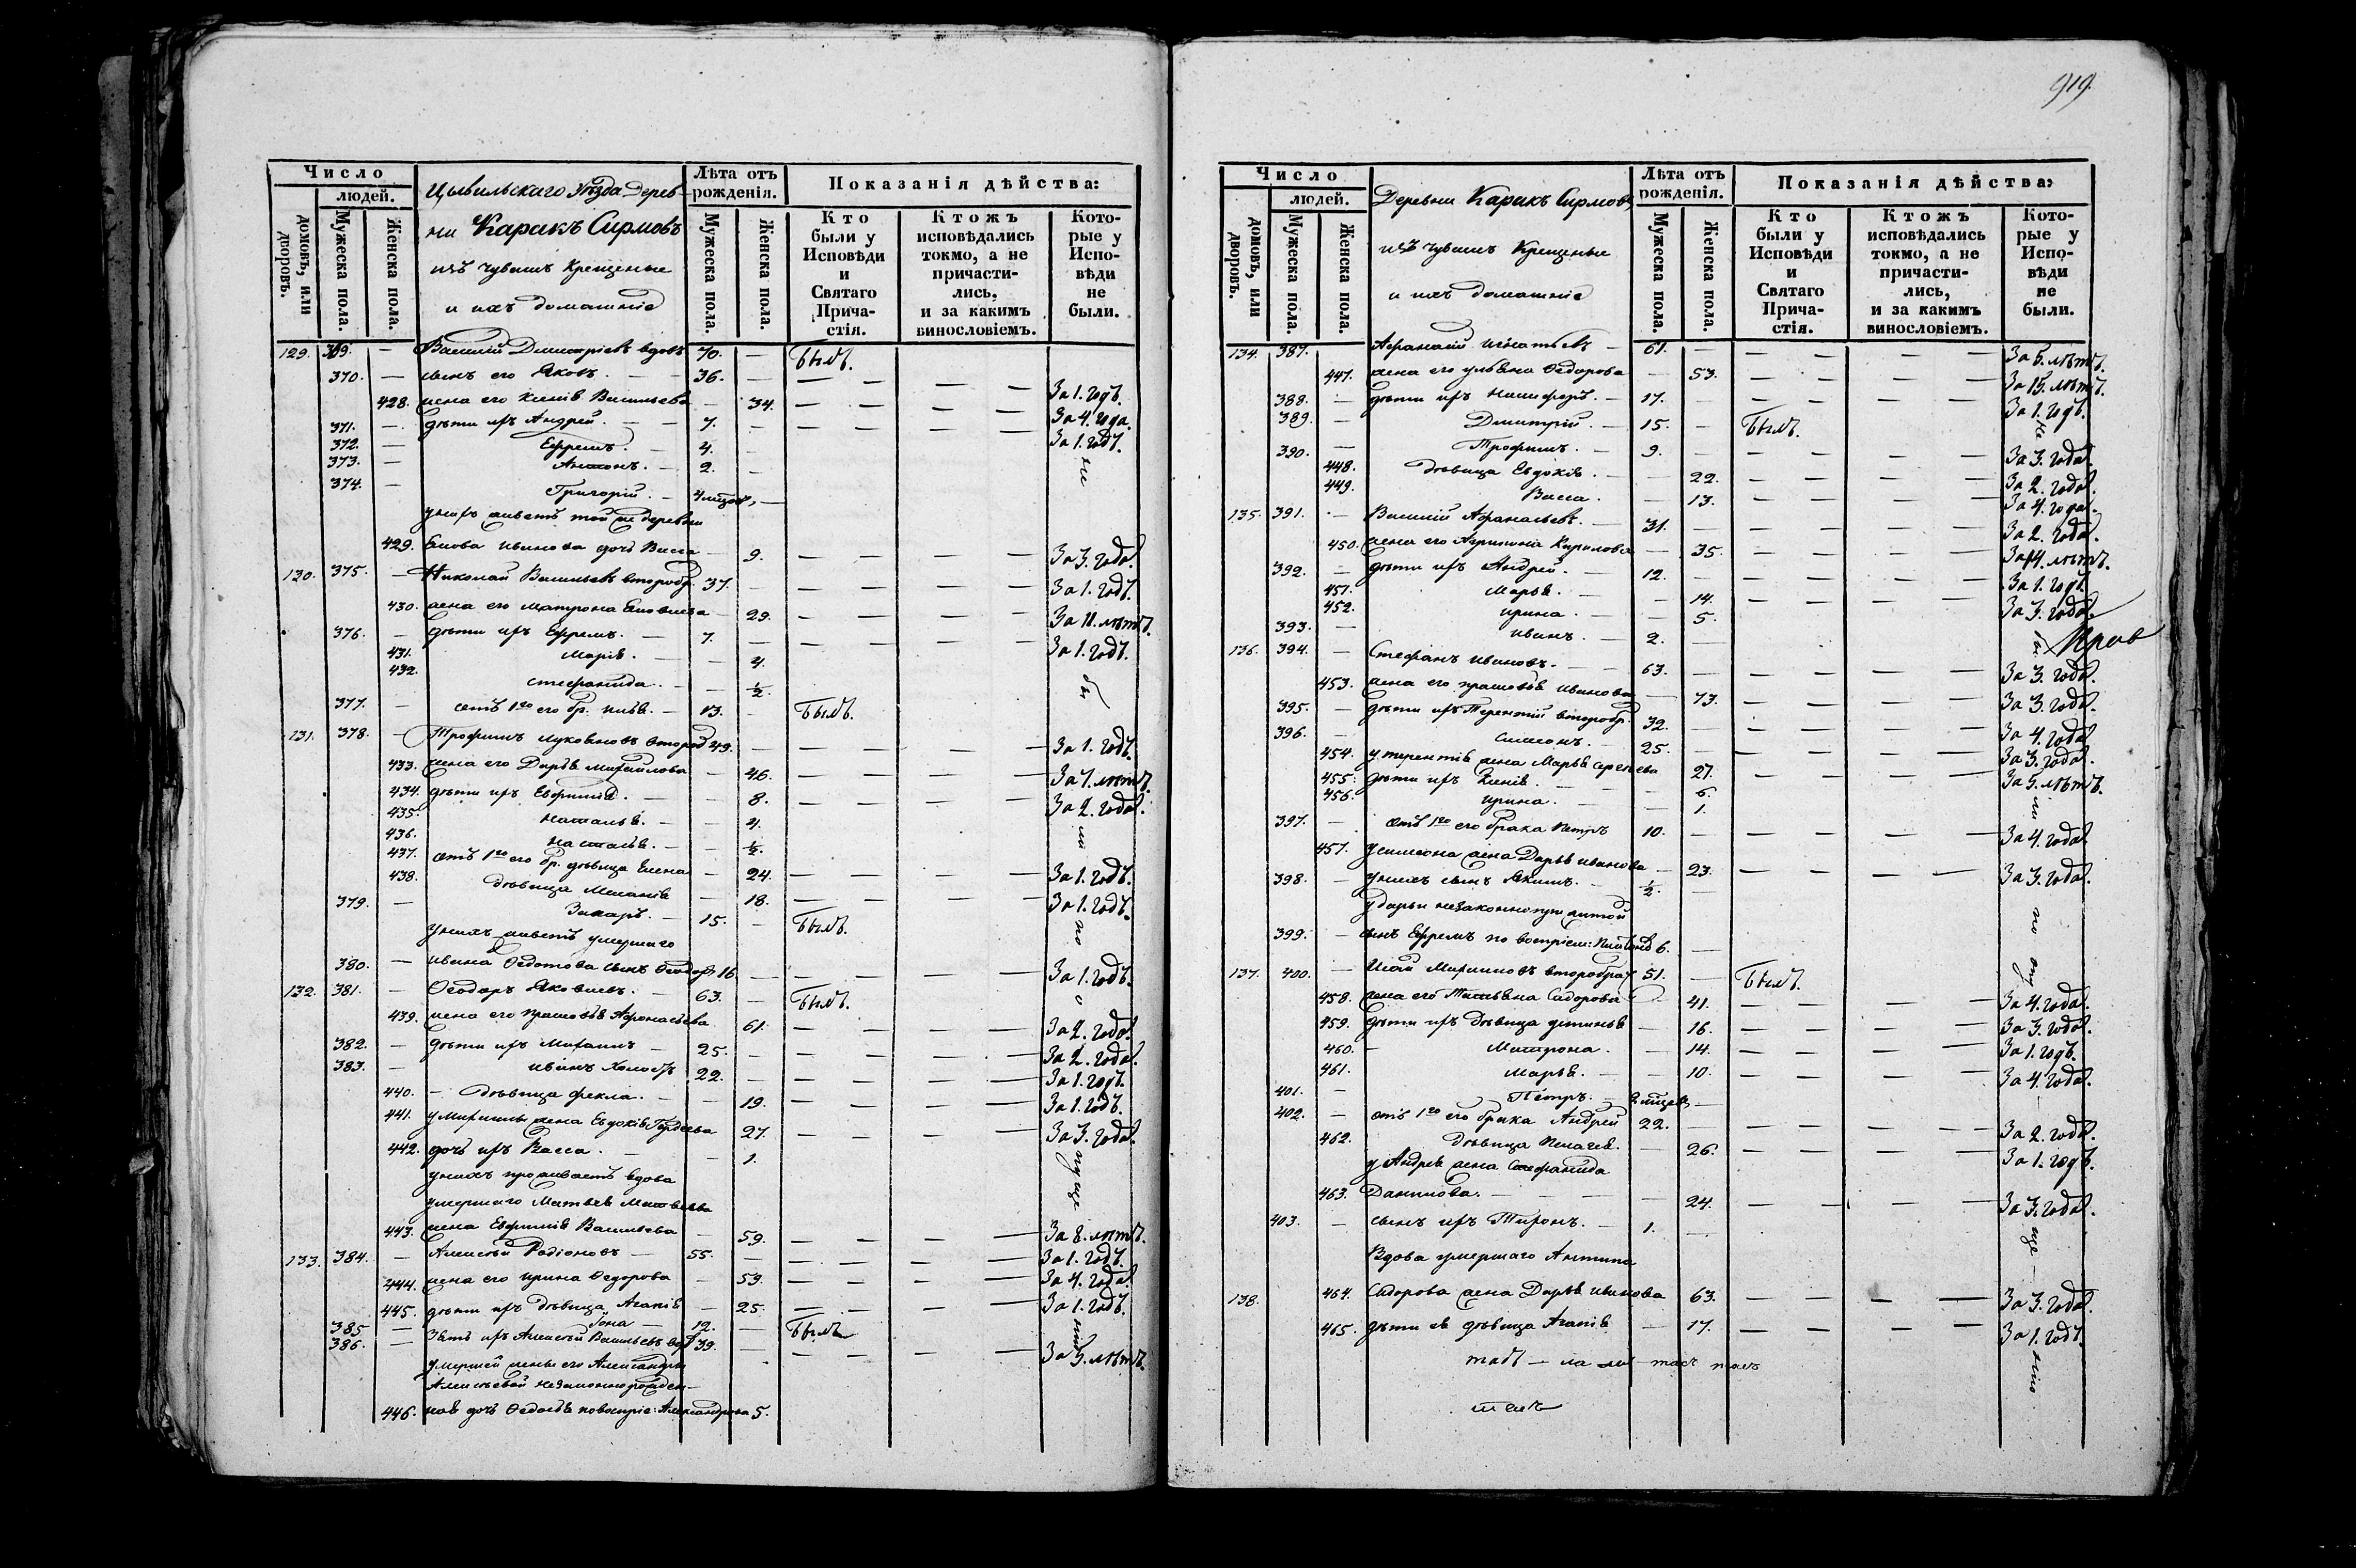 919.
Число
людей.
домовъ, или дворовъ.
Мужеска пола.
Женска пола.
Цывильскаго Уѣзда Дерев-
ни Карикъ Сирмовъ
изъ чувашъ Крещеные
и ихъ домашніе
Лѣта отъ рожденія.
Мужеска пола.
Женска пола.
Показанія дѣйства:
Кто были у Исповѣди и Святаго Причастія.
Ктожъ исповѣдались токмо, а не причастились, и за какимъ винословіемъ.
Которые у Исповѣди не были.
129. 369. — Василій Димитріевъ вдовъ 70. — Былъ.
370. — сынъ его Яковъ. — 36. — За 1. годъ.
428. жена его Ксенія Васильева — 34. За 4. года.
371. — дѣти ихъ Андрей. — 7. — За 1. годъ.
372. — Ефремъ. — 4. —
373. — Антонъ. — 2. —
374. — Григорій. — 4 мѣсяц. —
у нихъ живетъ той же деревни
429. дочь Васса — 9. За 3. года.
130. 375. — Николай Васильевъ второбр. 37. — За 1. годъ.
430. жена его Матрона — 29. За 11. лѣтъ.
376. — дѣти ихъ Ефремъ. — 7. — За 1. годъ.
431. Марія. — 4.
432. Стефанида. — ½.
377. — отъ 1го его бр. Илья. — 13. — Былъ.
131. 378. — Трофимъ Лукояновъ второб. 49. — За 1. годъ.
433. жена его Дарья Михайлова — 46. За 7. лѣтъ.
434. дѣти ихъ Евфимія. — 8. За 2. года.
435. Наталья. — 4.
436. Наталья. — ½.
437. отъ 1го его бр. дѣвица Елена — 24. За 1. годъ.
438. дѣвица Меланія — 18. За 1. годъ.
379. — Захаръ. — 15. — Былъ.
у нихъ живетъ умершаго
380. — Ивана Федотова сынъ Ѳеодоръ 16. За 1. годъ.
132. 381. — Ѳеодоръ Яковлевъ. — 63. — Былъ.
439. жена его Прасковья Афонасьева 61. За 2. года.
382. — дѣти ихъ Михаилъ — 25. — За 2. года.
383. — Иванъ Холостъ 22. — За 1. годъ.
440. — дѣвица Фекла. — 19. За 1. годъ.
441. у Михаилы жена Евдокія Гордеева 27. За 3. года.
442. дочь ихъ Васса. — 1.
у нихъ проживаетъ вдова
умершаго Матвея Матвеева
443. жена Евфимія Васильева — 59. За 8. лѣтъ.
133. 384. — Алексѣй Родіоновъ — 55. — За 1. годъ.
444. жена его Ирина Ѳедорова — 59. За 4. года.
445. дѣти ихъ дѣвица Агапія — 25. За 1. годъ.
385. — Іона — 12. — Былъ
386. — Зять ихъ Алексѣй Васильевъ вдов. 39. — За 5. лѣтъ.
умершей жены его Александры
Алексѣевой незаконнорожден-
446. ная дочь Ѳедосья по воспріе: Александрова 5.
Число
людей.
домовъ, или дворовъ.
Мужеска пола.
Женска пола.
Деревни Карикъ Сирмовъ,
изъ чувашъ Крещеные
и ихъ домашніе
Лѣта отъ рожденія.
Мужеска пола.
Женска пола.
Показанія дѣйства:
Кто были у Исповѣди и Святаго Причастія.
Ктожъ исповѣдались токмо, а не причастились, и за какимъ винословіемъ.
Которые у Исповѣди не были.
134. 387. Афанасій Игнатьевъ — 61. — За 5. лѣтъ.
447. жена его Ульяна Ѳедорова — 53. За 15. лѣтъ.
388. — дѣти ихъ Никифоръ. — 17. — За 1. годъ.
389. — Димитрій. — 15. — Былъ.
390. — Трофимъ. — 9. — За 3. года.
448. дѣвица Евдокія. — 22. За 2. года.
449. Васса. — 13. За 4. года.
135. 391. — Василій Афанасьевъ. — 31. — За 2. года.
450. жена его Агрипина Кирилова — 35. За 14. лѣтъ.
392. — дѣти ихъ Андрей. — 12. — За 1. годъ.
451. Марья. — 14. За 3. года.
452. Ирина. — 5.
393. — Иванъ. — 2.
Прав
136. 394. — Стефанъ Ивановъ. — 63. — За 3. года.
453. жена его Прасковья Иванова — 73. За 3. года.
395. — дѣти ихъ Терентій второбр. 32. — За 4. года
396. — Симеонъ. — 25. — За 3. года.
454. у Терентія жена Марья Сергеева 27. За 5. лѣтъ.
455. дѣти ихъ Ксенія. — 6.
456. Ирина. — 1.
397. — отъ 1го его брака Петръ 10. — За 4. года
457. у Симеона жена Дарья Иванова — 23. За 3. года.
398. — у нихъ сынъ Якимъ. — ½. —
у Дарьи незаконноприжитой
399. — сынъ Ефремъ по воспріем: 6. —
137. 400. — Исай Маркиновъ второбрач 51. — Былъ.
458. жена его Татьяна Сидорова 41. За 4. года.
459. дѣти ихъ дѣвица Устинья — 16. За 3. года.
460. — Матрона. — 14. За 1. годъ.
461. Марья. — 10. За 4. года.
401. — Петръ. — 2 мѣсяц. —
402. — отъ 1го его брака Андрей 22. — За 2. года.
462. дѣвица Пелагея. — 26. За 1. годъ.
у Андрея жена Стефанида
463. Данилова. — 24. За 3. года.
403. — сынъ ихъ Тихонъ. — 1. —
Вдова умершаго Антипа
138. 464. Сидорова жена Дарья Иванова 63. За 3. года.
465. дѣти ея дѣвица Агапія — 17. За 1. годъ.